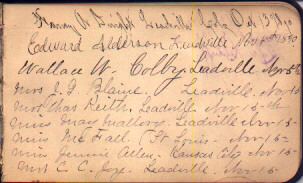 Harry W Dwight Leadville Colo Oct 13
Edward Alderson Leadville Nov
Wallace W. Colby Leadville Nov 5th
Mrs J. F. Blaine. Leadville. Nov 10
Mrs Thos Keith. Leadville Nov 15-th
Miss May Mallory. Leadville. Nov-15-
Miss McFall. St Louis. Nov 15-
Miss Jennie Allen. Kansas City Nov 15
Mrs C. C. Joy. Leadville. Nov 15